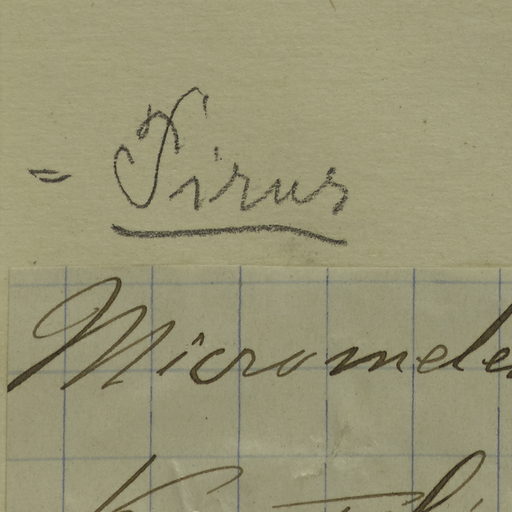 = Pirus
Micromele